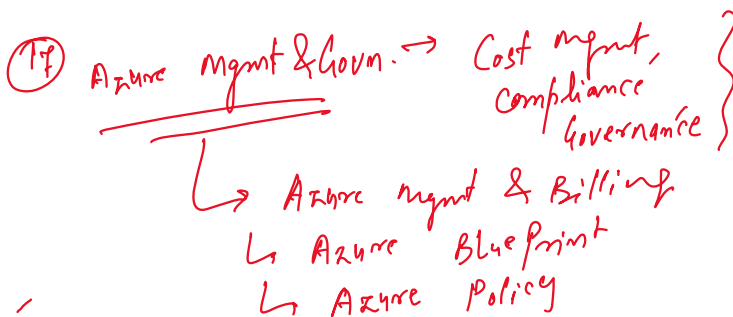 17 Azure Mgmt & Govn. → Cost mgmt,
Compliance
Governance
↳ Azure mgmt & Billing
↳ Azure BluePrint
↳ Azure Policy